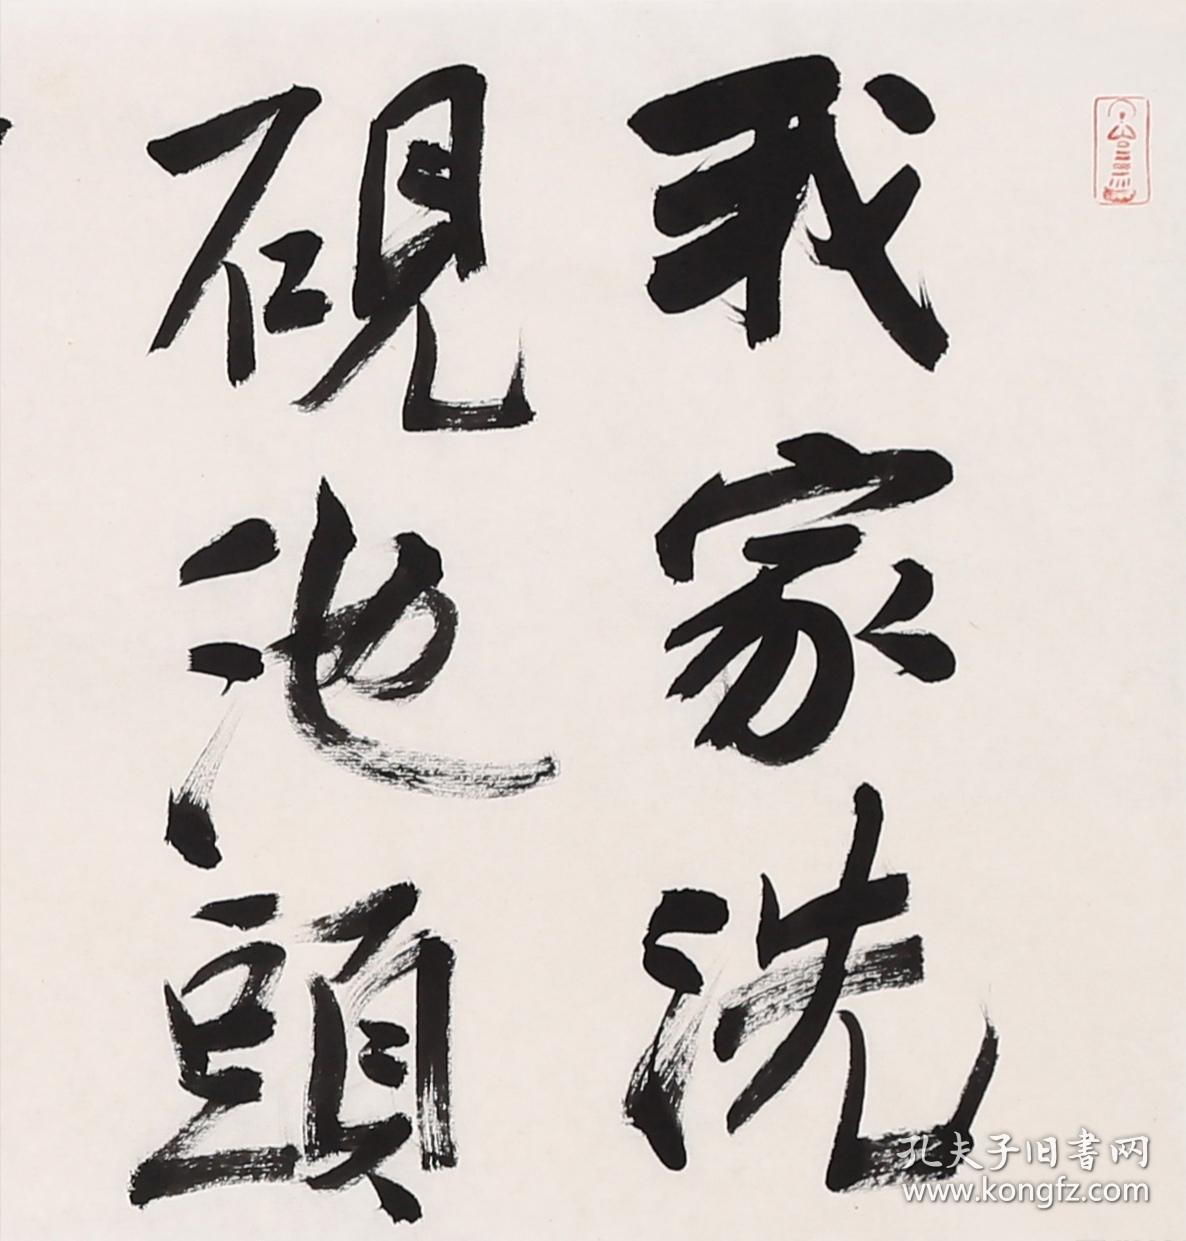 我家洗
硯池頭
孔夫子旧書网
www.kongfz.com